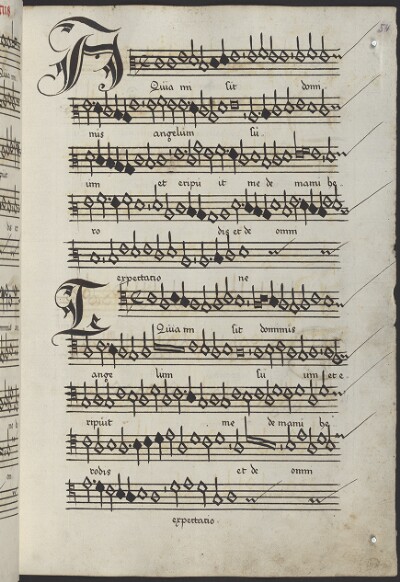 Quia mi sit domi
nus angelum su
um et eripu it me de manu he
ro dis et de omni
expectatio ne
Quia mi sit dominus
ange lum su um et e
ripuit me de manu he
rodis et de omni
expectatio